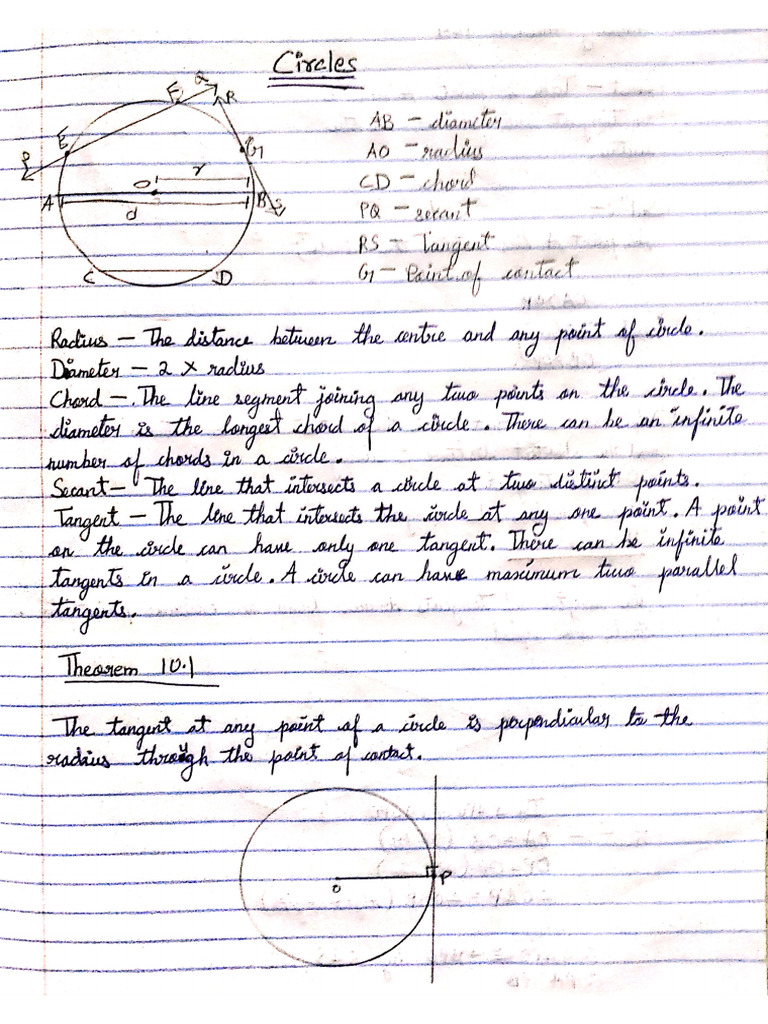 Circles
Q
E
R
E
G
P
O
r
A
B
S
d
C
D
AB - diameter
AO - radius
CD - chord
PQ - secant
RS - Tangent
G - Point of contact
Radius - The distance between the centre and any point of circle.
Diameter - 2 × radius
Chord - . The line segment joining any two points on the circle. The
diameter is the longest chord of a circle. There can be an infinite
number of chords in a circle.
Secant - The line that intersects a circle at two distinct points.
Tangent - The line that intersects the circle at any one point. A point
on the circle can have only one tangent. There can be infinite
tangents in a circle. A circle can have maximum two parallel
tangents.
Theorem 10.1
The tangent at any point of a circle is perpendicular to the
radius through the point of contact.
O
P